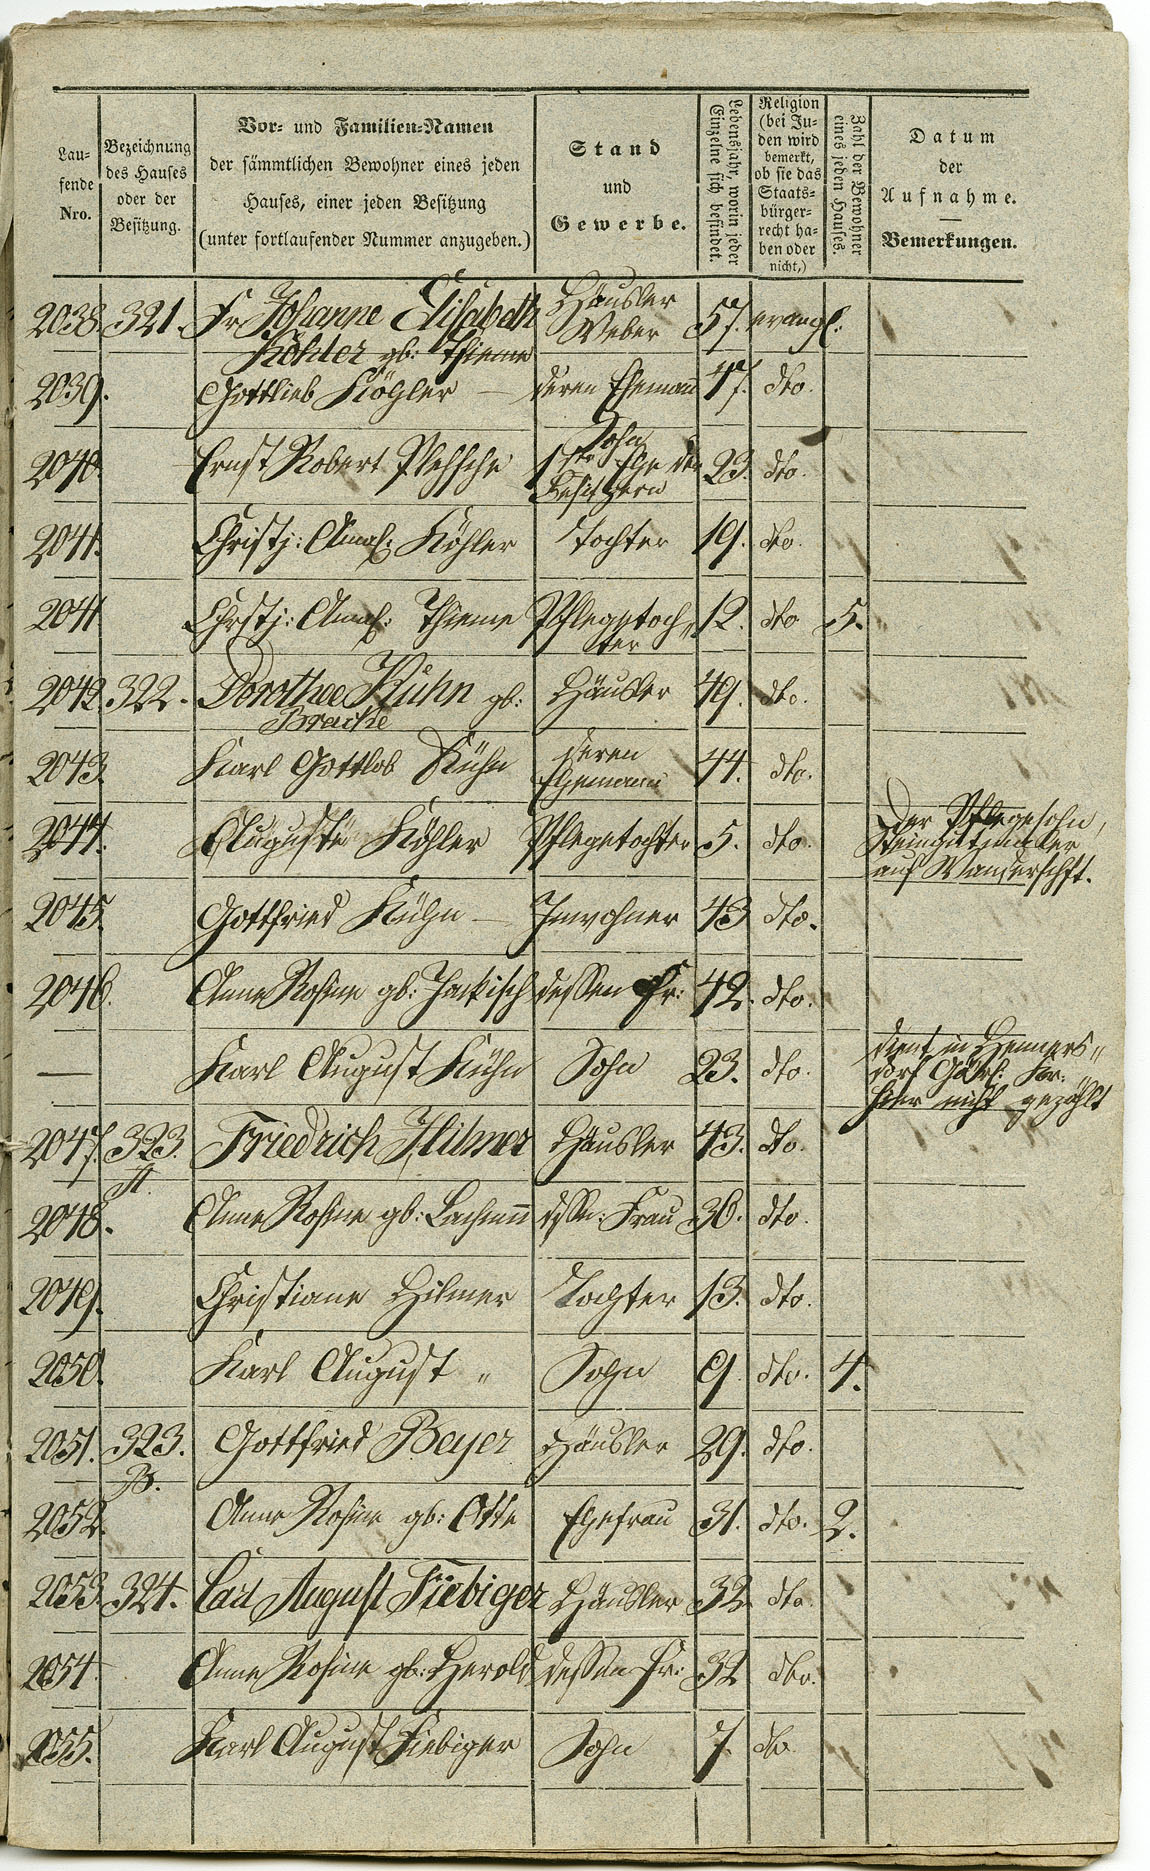 Lau-
fende
Nro.
Bezeichnung
des Hauses
oder der
Besitzung.
Vor- und Familien-Namen
der sämmtlichen Bewohner eines jeden
Hauses, einer jeden Besitzung
(unter fortlaufender Nummer anzugeben.)
Stand
und
Gewerbe.
Lebensjahr, worin jeder
Einzelne sich befindet.
Religion
(bei Ju-
den wird
bemerkt,
ob sie das
Staats-
bürger-
recht ha-
ben oder
nicht,)
Zahl der Bewohner
eines jeden Hauses.
Datum
der
Aufnahme.
Bemerkungen.
2038. 321. Fr Johanne Elisabeth Häusler Weber 57. evangl.
Köhler gb: Thieme
2039. Gottlieb Köhler — deren Ehemann 47. dto.
2040. Ernst Robert Sohn 1ster Ehe der Besitzern 23. dto.
2041. Christj: Amal: Köhler Tochter 19. dto.
2041 Chrstj: Amal: Thieme Pflegetoch„ ter 12. dto 5.
2042. 322. Dorothee Kühn gb: Häusler 49. dto.
Bracke
2043. Karl Gottlob Kühn deren Ehemann 44. dto.
2044. Auguste Köhler Pflegetochter 5. dto. Der Pflegesohn,
auf Wanderschft.
2045. Gottfried Kühn — Inwohner 43 dto.
2046. Anne Rosine gb: Jackisch dessen Fr: 42. dto.
— Karl August Kühn Sohn 23. dto. dient in Henners„
dorf Görl: Kr:
hier nicht gezählt
2047. 323. A. Friedrich Hilmer Häusler 43. dto.
2048. Anne Rosine gb: Lachmnn dssn: Frau 36. dto.
2049. Christiane Hilmer Tochter 13. dto.
2050. Karl August „ Sohn 9. dto. 4.
2051. 323. B. Gottfried Beyer Häusler 29. dto.
2052. Anne Rosine gb: Otte Ehefrau 31. dto. 2.
2053. 324. Carl August Fiebiger Häusler 32. dto.
2054. Anne Rosine gb: Herold dessen Fr: 32 dto.
2055. Karl August Fiebiger Sohn 7. dto